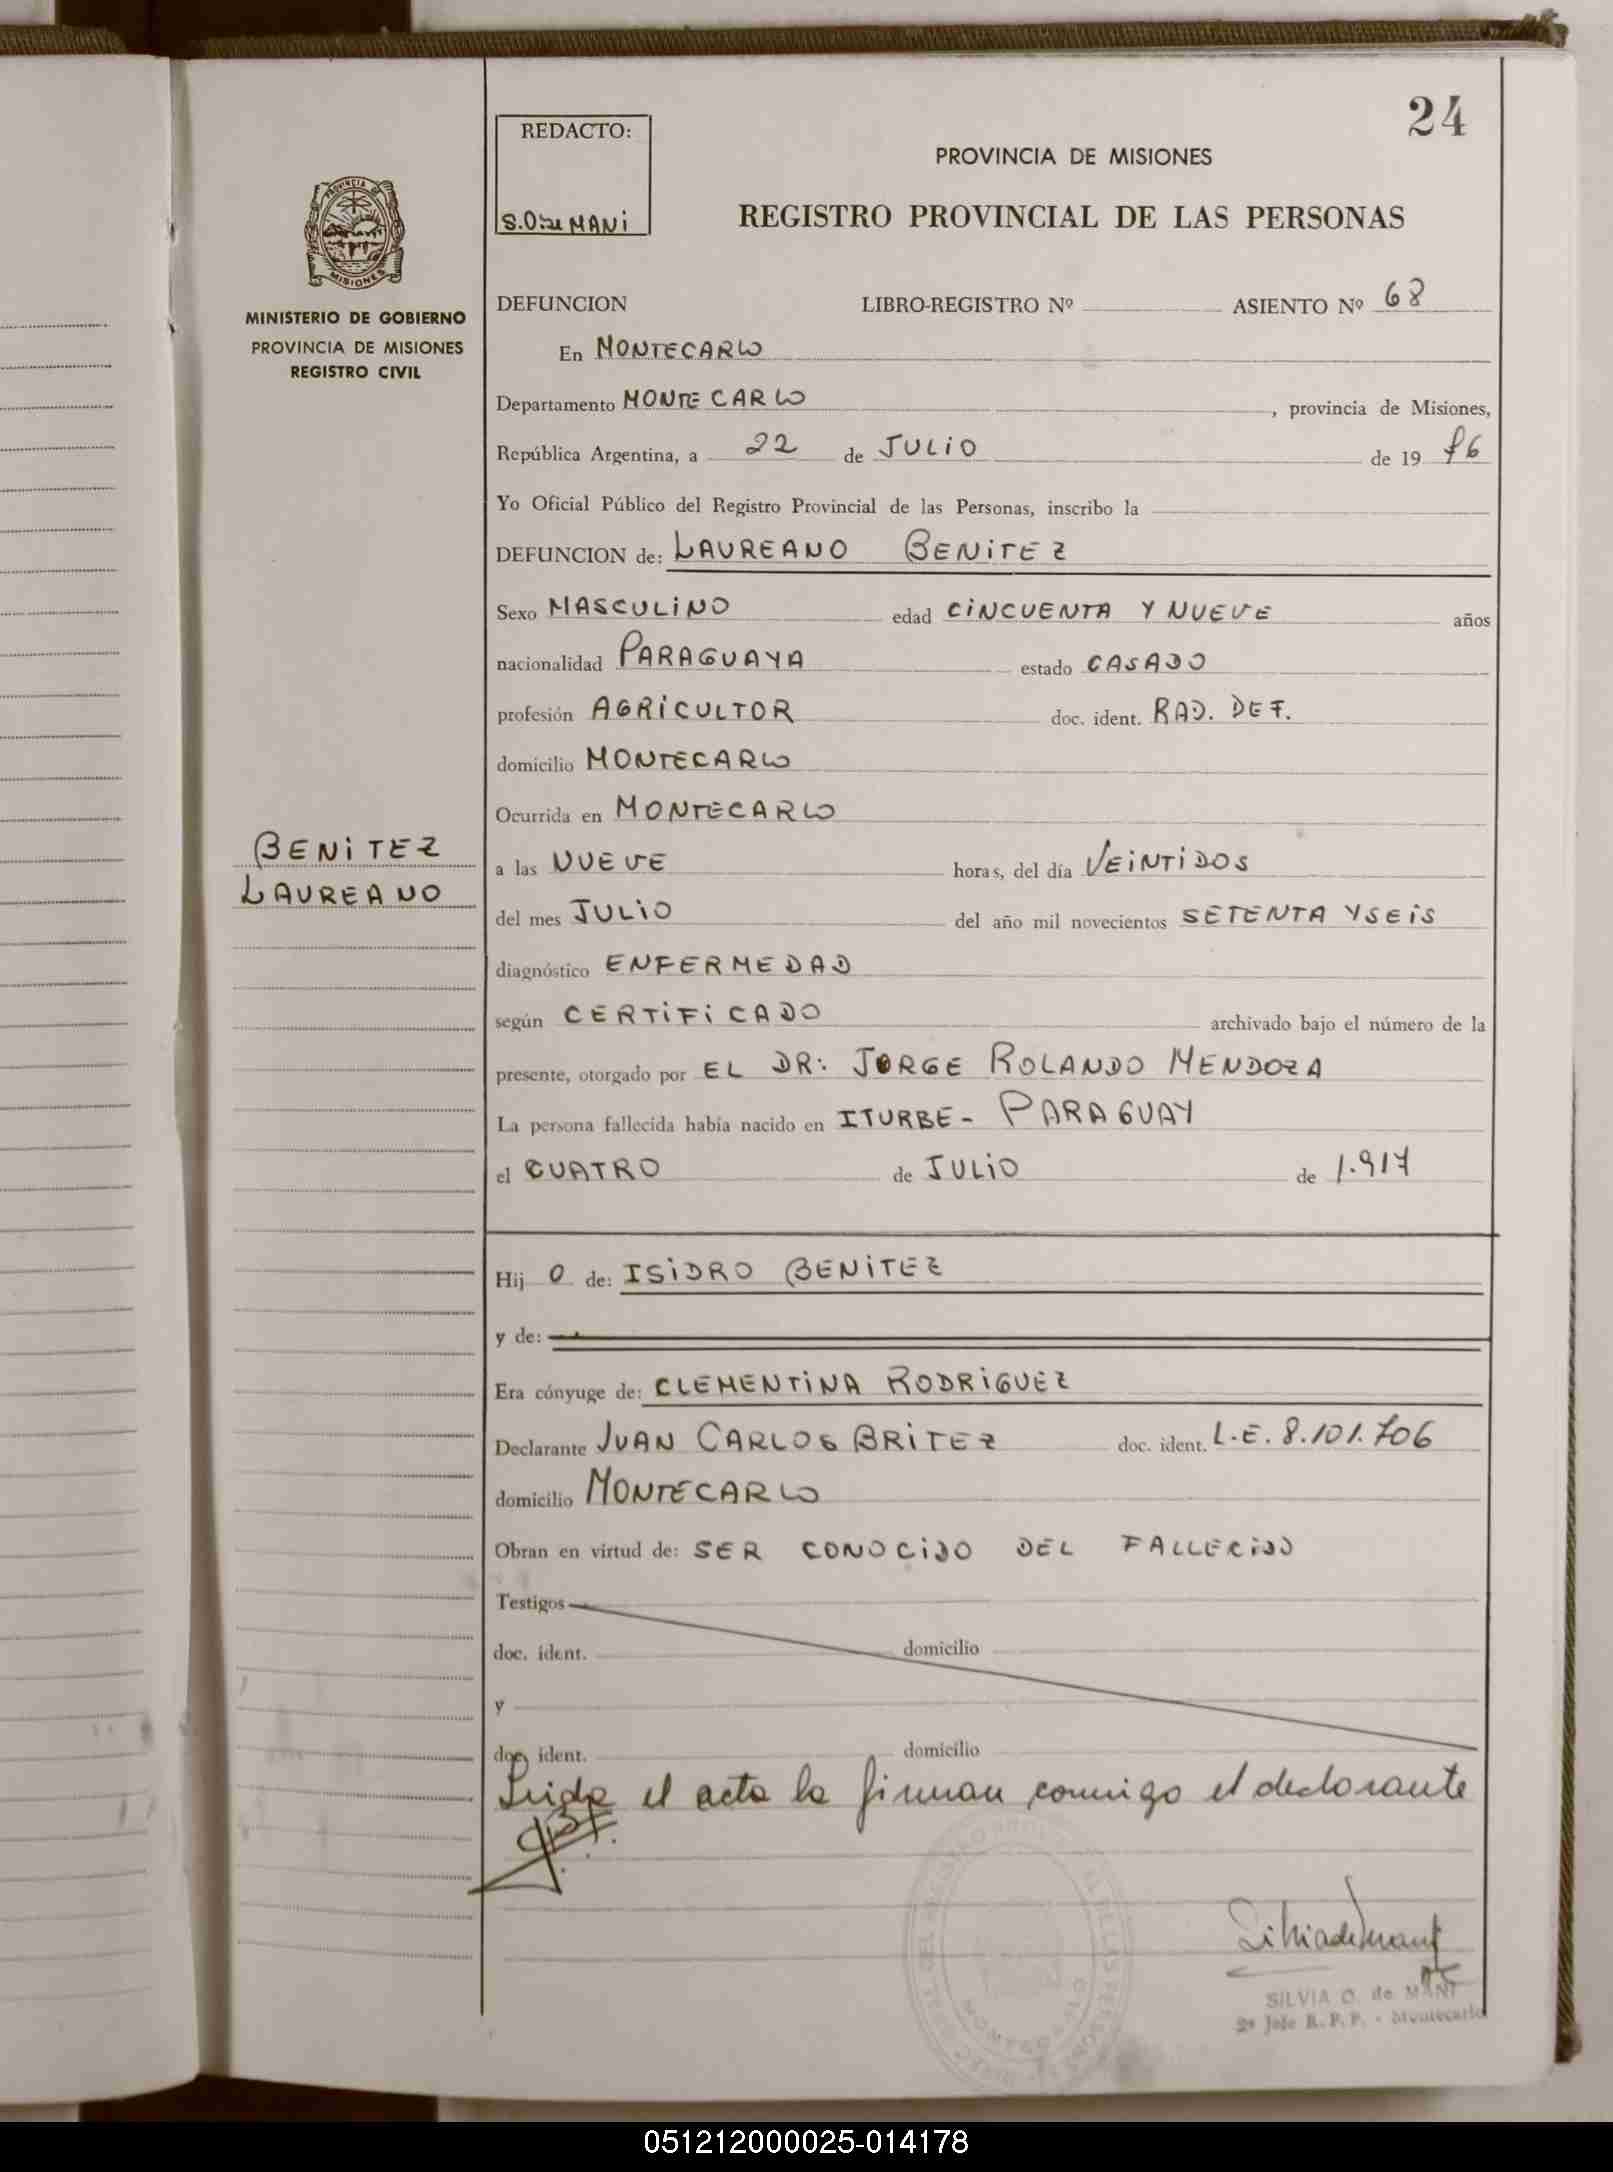 24
REDACTO:
S.O. de MANI
PROVINCIA DE MISIONES
REGISTRO PROVINCIAL DE LAS PERSONAS
PROVINCIA DE
MISIONES
MINISTERIO DE GOBIERNO
PROVINCIA DE MISIONES
REGISTRO CIVIL
DEFUNCION LIBRO-REGISTRO Nº ASIENTO Nº 68
En MONTECARLO
Departamento MONTECARLO, provincia de Misiones,
República Argentina, a 22 de JULIO de 19 76
Yo Oficial Público del Registro Provincial de las Personas, inscribo la
DEFUNCION de: LAUREANO BENITEZ
Sexo MASCULINO edad CINCUENTA Y NUEVE años
nacionalidad PARAGUAYA estado CASADO
profesión AGRICULTOR doc. ident. RAD. DEF.
domicilio MONTECARLO
Ocurrida en MONTECARLO
BENITEZ
LAUREANO
a las NUEVE horas, del día VEINTIDOS
del mes JULIO del año mil novecientos SETENTA Y SEIS
diagnóstico ENFERMEDAD
según CERTIFICADO archivado bajo el número de la
presente, otorgado por EL DR: JORGE ROLANDO MENDOZA
La persona fallecida había nacido en ITURBE - PARAGUAY
el CUATRO de JULIO de 1.917
Hij O de: ISIDRO BENITEZ
y de:
Era cónyuge de: CLEMENTINA RODRIGUEZ
Declarante JUAN CARLOS BRITEZ doc. ident. L.E. 8.101.706
domicilio MONTECARLO
Obran en virtud de: SER CONOCIDO DEL FALLECIDO
Testigos
doc. ident. domicilio
y
doc. ident. domicilio
Leida el acta la firman conmigo el declarante
SILVIA O. de MANI
2º Jefe R. P. P. - Montecarlo
051212000025-014178